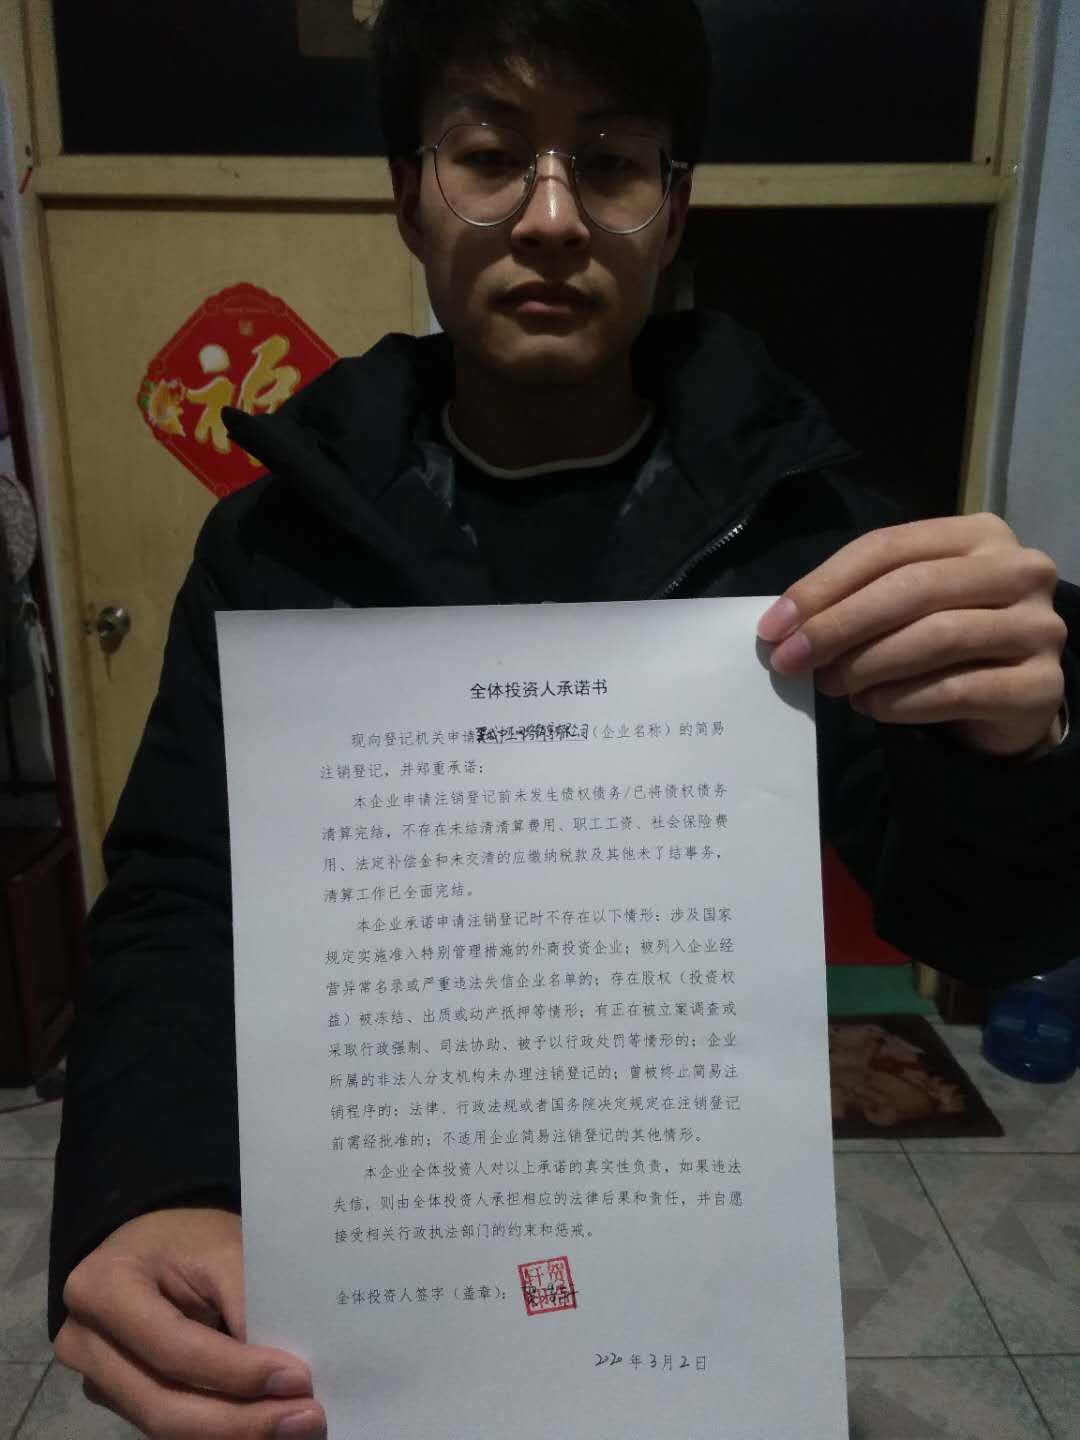 福
全体投资人承诺书
现向登记机关申请有限公司(企业名称)的简易
注销登记,并郑重承诺:
本企业申请注销登记前未发生债权债务/已将债权债务
清算完结,不存在未结清清算费用、职工工资、社会保险费
用、法定补偿金和未交清的应缴纳税款及其他未了结事务,
清算工作已全面完结。
本企业承诺申请注销登记时不存在以下情形:涉及国家
规定实施准入特别管理措施的外商投资企业;被列入企业经
营异常名录或严重违法失信企业名单的;存在股权(投资权
益)被冻结、出质或动产抵押等情形;有正在被立案调查或
采取行政强制、司法协助、被予以行政处罚等情形的;企业
所属的非法人分支机构未办理注销登记的;曾被终止简易注
销程序的;法律、行政法规或者国务院决定规定在注销登记
前需经批准的;不适用企业简易注销登记的其他情形。
本企业全体投资人对以上承诺的真实性负责,如果违法
失信,则由全体投资人承担相应的法律后果和责任,并自愿
接受相关行政执法部门的约束和惩戒。
全体投资人签字(盖章):
2020年3月2日